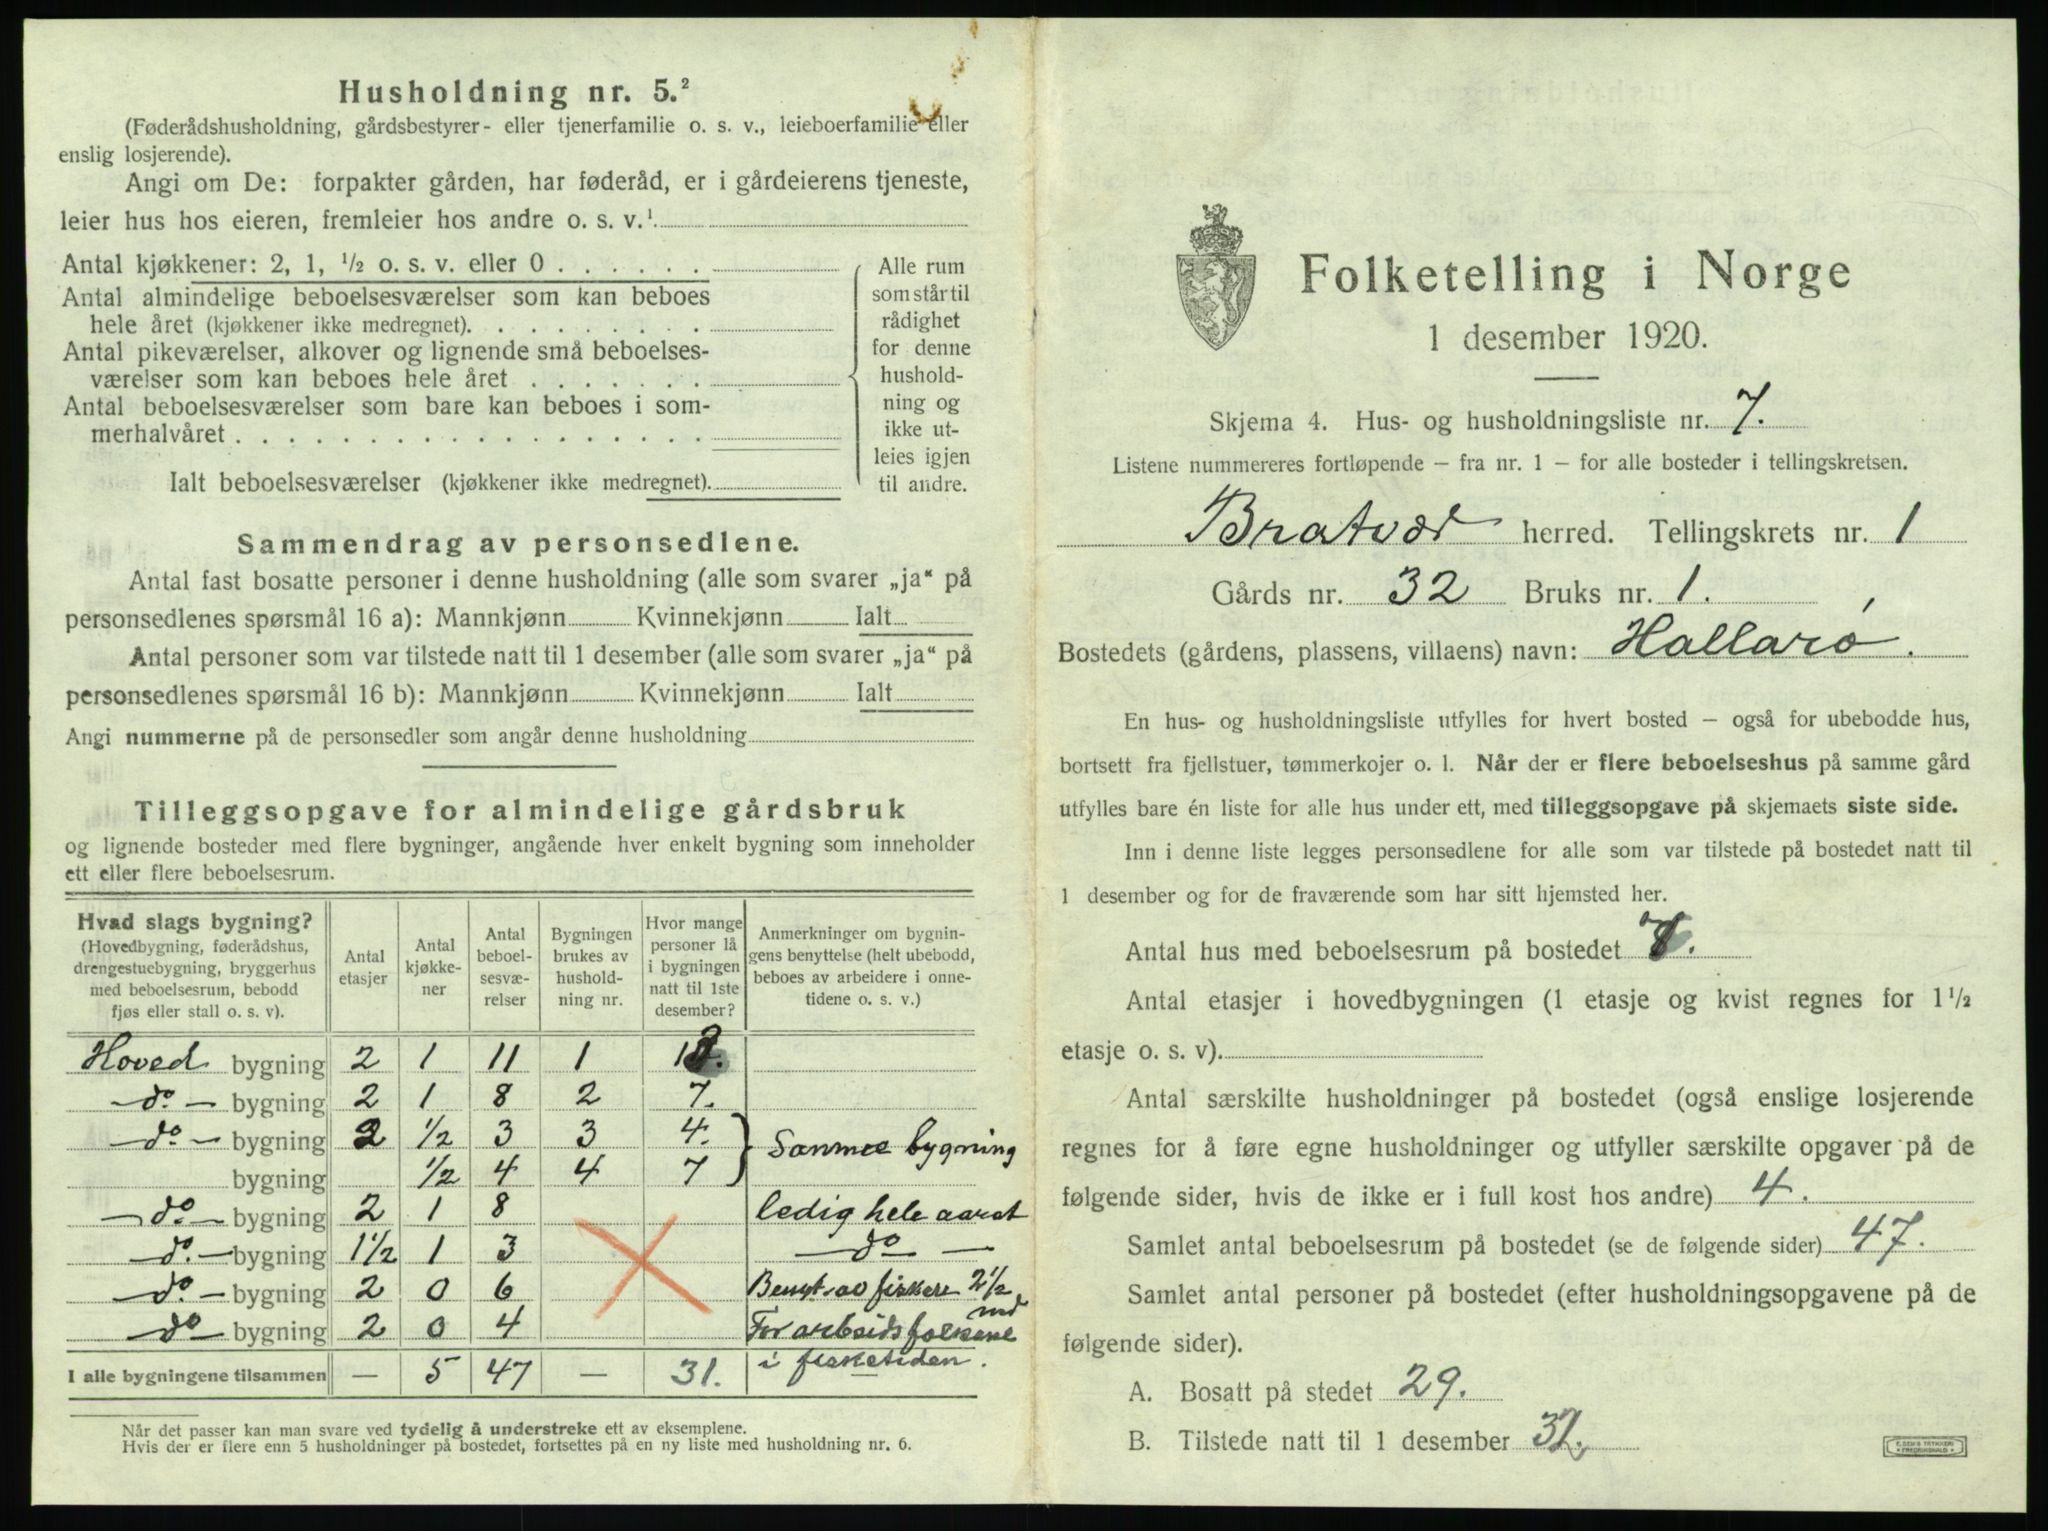 Husholdning nr. 5.²
(Føderådshusholdning, gårdsbestyrer- eller tjenerfamilie o. s. v., leieboerfamilie eller
enslig losjerende).
Angi om De: forpakter gården, har føderåd, er i gårdeierens tjeneste,
leier hus hos eieren, fremleier hos andre o. s. v.¹
Antal kjøkkener: 2, 1, ½ o. s. v. eller 0 . . . . . .
Antal almindelige beboelsesværelser som kan beboes
hele året (kjøkkener ikke medregnet). . . . . . . . .
Antal pikeværelser, alkover og lignende små beboelses-
værelser som kan beboes hele året . . . . . . .
Antal beboelsesværelser som bare kan beboes i som-
merhalvåret . . . . . . . . . . . . . . . . . .
Ialt beboelsesværelser (kjøkkener ikke medregnet).
Alle rum
som står til
rådighet
for denne
hushold-
ning og
ikke ut-
leies igjen
til andre.
Sammendrag av personsedlene.
Antal fast bosatte personer i denne husholdning (alle som svarer „ja“ på
personsedlenes spørsmål 16 a): Mannkjønn Kvinnekjønn Ialt
Antal personer som var tilstede natt til 1 desember (alle som svarer „ja“ på
personsedlenes spørsmål 16 b): Mannkjønn Kvinnekjønn Ialt
Angi nummerne på de personsedler som angår denne husholdning
Tilleggsopgave for almindelige gårdsbruk
og lignende bosteder med flere bygninger, angående hver enkelt bygning som inneholder
ett eller flere beboelsesrum.
Hvad slags bygning?
(Hovedbygning, føderådshus,
drengestuebygning, bryggerhus
med beboelsesrum, bebodd
fjøs eller stall o. s. v).
Antal
etasjer
Antal
kjøkke-
ner
Antal
beboel-
sesvæ-
relser
Bygningen
brukes av
hushold-
ning nr.
Hvor mange
personer lå
i bygningen
natt til 1ste
desember?
Anmerkninger om bygnin-
gens benyttelse (helt ubebodd,
beboes av arbeidere i onne-
tidene o. s. v.)
Hoved bygning 2 1 11 1
—do.— bygning 2 1 8 2 7.
—do.— bygning 2 ½ 3 3 4. Sammee bygning
bygning ½ 4 4 7
—do.— bygning 2 1 8 ledig hele aaret
—do.— bygning 1½ 1 3 —do—
—do.— bygning 2 0 6 Benyt. av fiskere 2½ md
—do— bygning 2 0 4 For arbeidsfolkene
I alle bygningene tilsammen — 5 47 — 31. i fisketiden.
Når det passer kan man svare ved tydelig å understreke ett av eksemplene.
Hvis der er flere enn 5 husholdninger på bostedet, fortsettes på en ny liste med husholdning nr. 6.
Folketelling i Norge
1 desember 1920.
Skjema 4. Hus- og husholdningsliste nr. 7.
Listene nummereres fortløpende – fra nr. 1 – for alle bosteder i tellingskretsen.
Bratvær herred. Tellingskrets nr. 1
Gårds nr. 32 Bruks nr. 1.
Bostedets (gårdens, plassens, villaens) navn: Hallarö.
En hus- og husholdningsliste utfylles for hvert bosted – også for ubebodde hus,
bortsett fra fjellstuer, tømmerkojer o. l. Når der er flere beboelseshus på samme gård
utfylles bare én liste for alle hus under ett, med tilleggsopgave på skjemaets siste side.
Inn i denne liste legges personsedlene for alle som var tilstede på bostedet natt til
1 desember og for de fraværende som har sitt hjemsted her.
Antal hus med beboelsesrum på bostedet
Antal etasjer i hovedbygningen (1 etasje og kvist regnes for 1½
etasje o. s. v).
Antal særskilte husholdninger på bostedet (også enslige losjerende
regnes for å føre egne husholdninger og utfyller særskilte opgaver på de
følgende sider, hvis de ikke er i full kost hos andre) 4.
Samlet antal beboelsesrum på bostedet (se de følgende sider) 47.
Samlet antal personer på bostedet (efter husholdningsopgavene på de
følgende sider).
A. Bosatt på stedet 29.
B. Tilstede natt til 1 desember